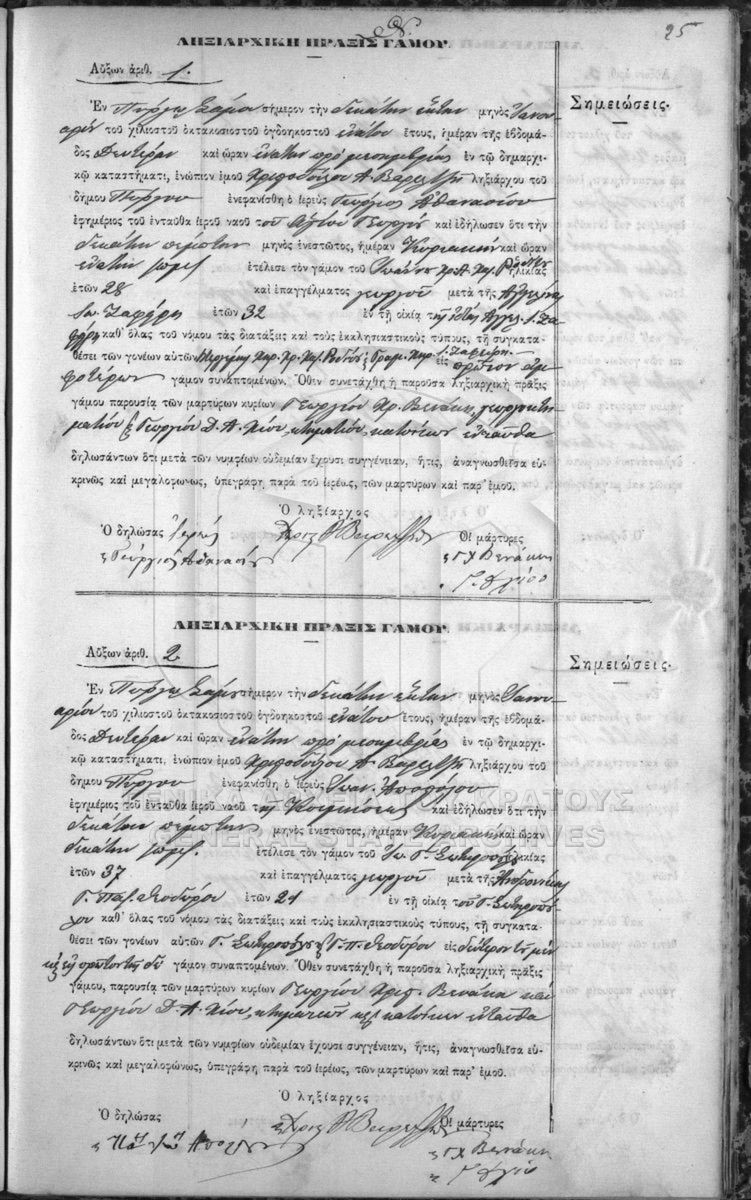 25
ΛΗΞΙΑΡΧΙΚΗ ΠΡΑΞΙΣ ΓΑΜΟΥ.
Αὔξων ἀριθ. 1.
Σημειώσεις.
Ἐν Πύργῳ Σάμου σήμερον τὴν δεκάτην ἕκτην μηνὸς Ἰανου-
αρίου τοῦ χιλιοστοῦ ὀκτακοσιοστοῦ ὀγδοηκοστοῦ ἐνάτου ἔτους, ἡμέραν τῆς ἑβδομά-
δος Δευτέραν καὶ ὥραν ἐνάτην πρὸ μεσημβρίας ἐν τῷ δημαρχι-
κῷ καταστήματι, ἐνώπιον ἐμοῦ Χριστοδούλου Α. ληξιάρχου τοῦ
δήμου Πύργου ἐνεφανίσθη ὁ ἱερεὺς Γεώργιος Ἀθανασίου
ἐφημέριος τοῦ ἐνταῦθα ἱεροῦ ναοῦ τοῦ Ἁγίου Γεωργίου καὶ ἐδήλωσεν ὅτι τὴν
δεκάτην πέμπτην μηνὸς ἐνεστῶτος, ἡμέραν Κυριακὴν καὶ ὥραν
ἐνάτην ἐτέλεσε τὸν γάμον τοῦ Ἰωάννου Χρ. Α. Χρ. ἡλικίας
ἐτῶν 28 καὶ ἐπαγγέλματος γεωργοῦ μετὰ τῆς
Ἰω. Ζαφείρη ἐτῶν 32 ἐν τῇ οἰκίᾳ
καθ' ὅλας τοῦ νόμου τὰς διατάξεις καὶ τοὺς ἐκκλησιαστικοὺς τύπους, τῇ συγκατα-
θέσει τῶν γονέων αὐτῶν εἰς πρῶτον ἀμ-
φοτέρων γάμον συναπτομένων. Ὅθεν συνετάχθη ἡ παροῦσα ληξιαρχικὴ πρᾶξις
γάμου παρουσίᾳ τῶν μαρτύρων κυρίων Γεωργίου Χρ. Βενάκη, γεωργοκτη-
ματίου καὶ Γεωργίου Δ. Α. Χίου, κτηματίου, κατοίκων ἐνταῦθα
δηλωσάντων ὅτι μετὰ τῶν νυμφίων οὐδεμίαν ἔχουσι συγγένειαν, ἥτις, ἀναγνωσθεῖσα εὐ-
κρινῶς καὶ μεγαλοφώνως, ὑπεγράφη παρὰ τοῦ ἱερέως, τῶν μαρτύρων καὶ παρ' ἐμοῦ.
Ὁ ληξίαρχος
Ὁ δηλώσας ἱερεύς
Οἱ μάρτυρες
Γεώργιος Ἀθανασίου
Γ Χ Βενάκη
ΛΗΞΙΑΡΧΙΚΗ ΠΡΑΞΙΣ ΓΑΜΟΥ.
Αὔξων ἀριθ. 2
Σημειώσεις.
Ἐν Πύργῳ Σάμου σήμερον τὴν δεκάτην ἕκτην μηνὸς Ἰανου-
αρίου τοῦ χιλιοστοῦ ὀκτακοσιοστοῦ ὀγδοηκοστοῦ ἐνάτου ἔτους, ἡμέραν τῆς ἑβδομά-
δος Δευτέραν καὶ ὥραν ἐνάτην πρὸ μεσημβρίας ἐν τῷ δημαρχι-
κῷ καταστήματι, ἐνώπιον ἐμοῦ Χριστοδούλου Α. ληξιάρχου τοῦ
δήμου Πύργου ἐνεφανίσθη ὁ ἱερεὺς Ἰωαν. Ἀποστόλου
ΓΕΝΙΚΑ ΑΡΧΕΙΑ ΤΟΥ ΚΡΑΤΟΥΣ
ἐφημέριος τοῦ ἐνταῦθα ἱεροῦ ναοῦ τῆς Κοιμήσεως καὶ ἐδήλωσεν ὅτι τὴν
δεκάτην πέμπτην μηνὸς ἐνεστῶτος, ἡμέραν Κυριακὴν καὶ ὥραν
GENERAL STATE ARCHIVES
δεκάτην ἐτέλεσε τὸν γάμον τοῦ Ἰω. Γ. Σωτηροπούλου ἡλικίας
ἐτῶν 37 καὶ ἐπαγγέλματος γεωργοῦ μετὰ τῆς Ἀνδρονίκης
Γ. Παπ. Θεοδώρου ἐτῶν 21 ἐν τῇ οἰκίᾳ τοῦ Γ. Σωτηροπού-
λου καθ' ὅλας τοῦ νόμου τὰς διατάξεις καὶ τοὺς ἐκκλησιαστικοὺς τύπους, τῇ συγκατα-
θέσει τῶν γονέων αὐτῶν Γ. Σωτηροπούλου Γ. Π. Θεοδώρου εἰς δεύτερον τὸν μὲν
εἰς πρῶτον τῆς δὲ γάμον συναπτομένων. Ὅθεν συνετάχθη ἡ παροῦσα ληξιαρχικὴ πρᾶξις
γάμου, παρουσίᾳ τῶν μαρτύρων κυρίων Γεωργίου Χρισ. Βενάκη καὶ
Γεωργίου Δ. Α. Χίου, κτηματιῶν κατοίκων ἐνταῦθα
δηλωσάντων ὅτι μετὰ τῶν νυμφίων οὐδεμίαν ἔχουσι συγγένειαν, ἥτις, ἀναγνωσθεῖσα εὐ-
κρινῶς καὶ μεγαλοφώνως, ὑπεγράφη παρὰ τοῦ ἱερέως, τῶν μαρτύρων καὶ παρ' ἐμοῦ.
Ὁ ληξίαρχος
Ὁ δηλώσας
Οἱ μάρτυρες
Γ Χ Βενάκη